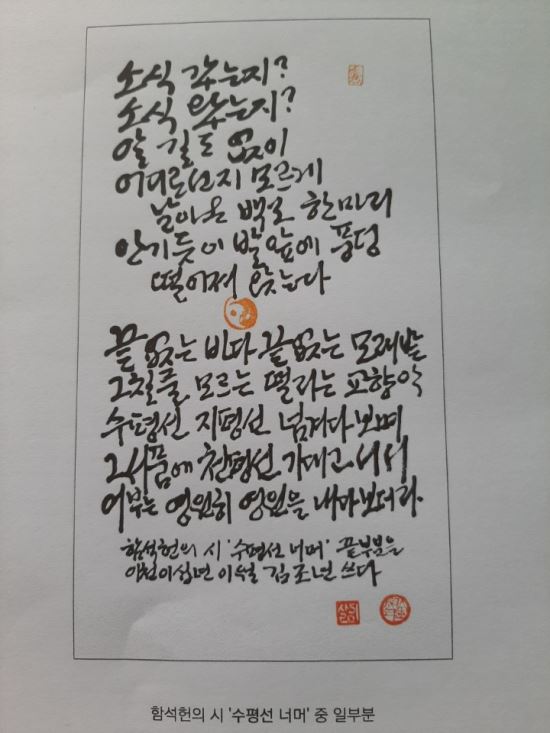 소식 갖는지?
소식 왔는지?
알 길도 없이
어디로선지 모르게
날아온 백로 한마리
안기듯이 발앞에 풍덩
떨어져 앉는다
끝없는 바다 끝없는 모래밭
그칠줄 모르는 떨리는 교향악
수평선 지평선 넘겨다보며
그사품에 천평선 가대고 서서
어부는 영원히 영원을 내다보더라.
함석헌의 시 '수평선 너머' 끝부분을
이천이십년 이월 김조년 쓰다
함석헌의 시 '수평선 너머' 중 일부분